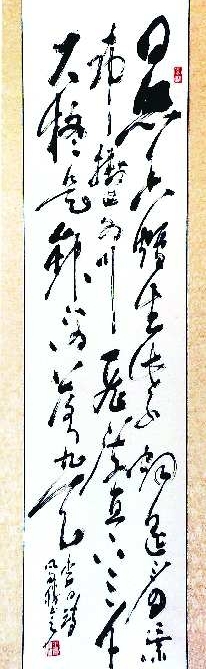 日照香炉生紫烟遥看瀑
布挂前川飞流直下三千
尺疑是银河落九天李白诗